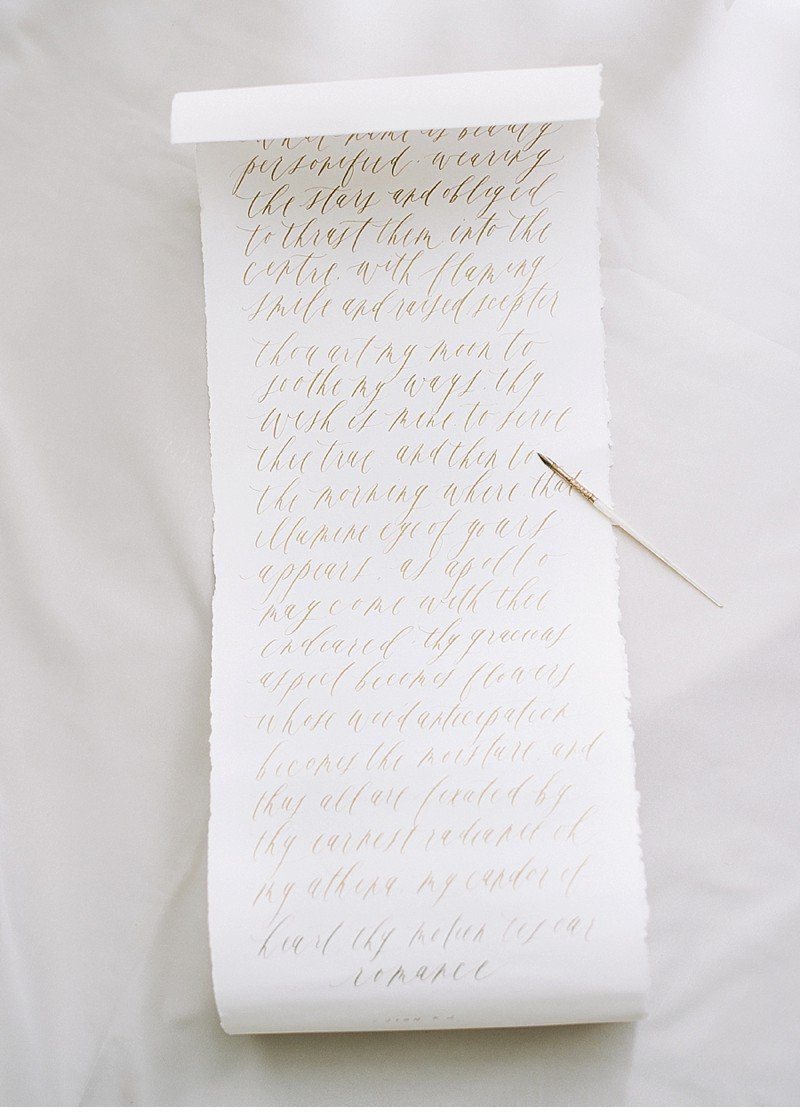 what name is beauty
personified. wearing
the stars and obliged
to thrust them into the
centre. with flaming
smile and raised scepter
thou art my moon to
soothe my ways. thy
wish is mine. to serve
thee true and then to
the morning where. that
illumine eye of yours
appears. as apollo
may come with thee
endeared. thy gracious
aspect becomes flowers
whose anticipation
becomes the moisture. and
thus all are fixated by
thy earnest radiance oh
my athena. my candor of
heart. thy
romance